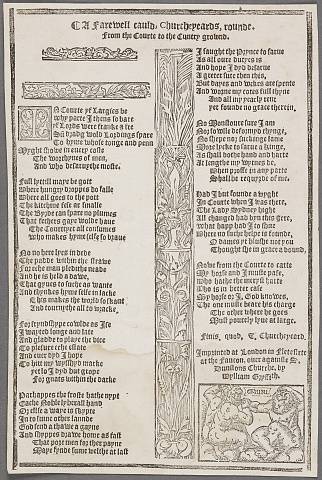 A Farewell cauld, Churcheyeards, rounde.
From the Courte to the Cuntry ground.
IN Courte yf Largies be
why parte I thens so bare
yf Lords were franke & fre
Sū dradg wold Lordings spare
To hyme whose tonge and penn
Myght showe in every coste
The worthynes of men,
And who desarueth moste.
Full lyttill maye he gott
Where hungry droppes do falle
Where all goes to the pott
The kitchyne fese ar smalle
The Byrde can spare no plumes
That fethers gaye wolde haue
The Courtyer all consumes
who makes hyme selfe so brave
No no here lyes in dede
The padde within the strawe
For eche man pledith neade
And so is held a dawe,
That gyues to suche as wante
And thynkes hym selfe in lacke
This makes the world so skant
And countrythe all to wracke,
For fryndshype towlde as Ise
I wayted longe and late
And gladde to playe the dice
To plesure eche estate
And ouer dyd I hope
To hitt my wysshyd marke
yet so I dyd but grope
For gnats within the darke
Parhappes the froste hathe nypt
Eache Noble lyberall hand
Or else a waye is skypte
In to sume other lannde
God send a thawe a gayne
And shyppes drawe home as fast
That pore men for ther payne
Maye fynde sume welthe at last
I saught the Prynce to sarue
As all oure dutyes is
And hope I dyd desarue
A greter sute then this,
But dayes and wekes are spente
And worne my cotes full thyne
And all my yearly rent
yet founde no grace therein.
No Monstoure sure I am
Nor fowlle deformyd thynge,
No shepe nor suckinge lame
More lycke to sarue a kinge,
As shall bothe hand and harte
At lengthe my wytnes be,
When profe in any parte
Shall be requyryde of me.
Had I but founde a wyght
In Courte when I was there,
The Lady Sydney hight
All changed had byn this gere,
what happ had I to shue
Where no suche helpe is founde,
O dames ye blushe not you
Thought she in grace abound,
Nowe from the Courte to carte
My horse and I muste passe,
who hathe the meryst harte
Tho is in better case
My horse or I, God knowes,
The one muste beare his charge
The other where he goes
Must powerly lyue at large.
Finis, quod, T. Churcheyard.
Imprinted at London in Flete strete
at the Faucon, ouer agaynste S.
Dunstons Churche, by
Wylliam Gryffith.